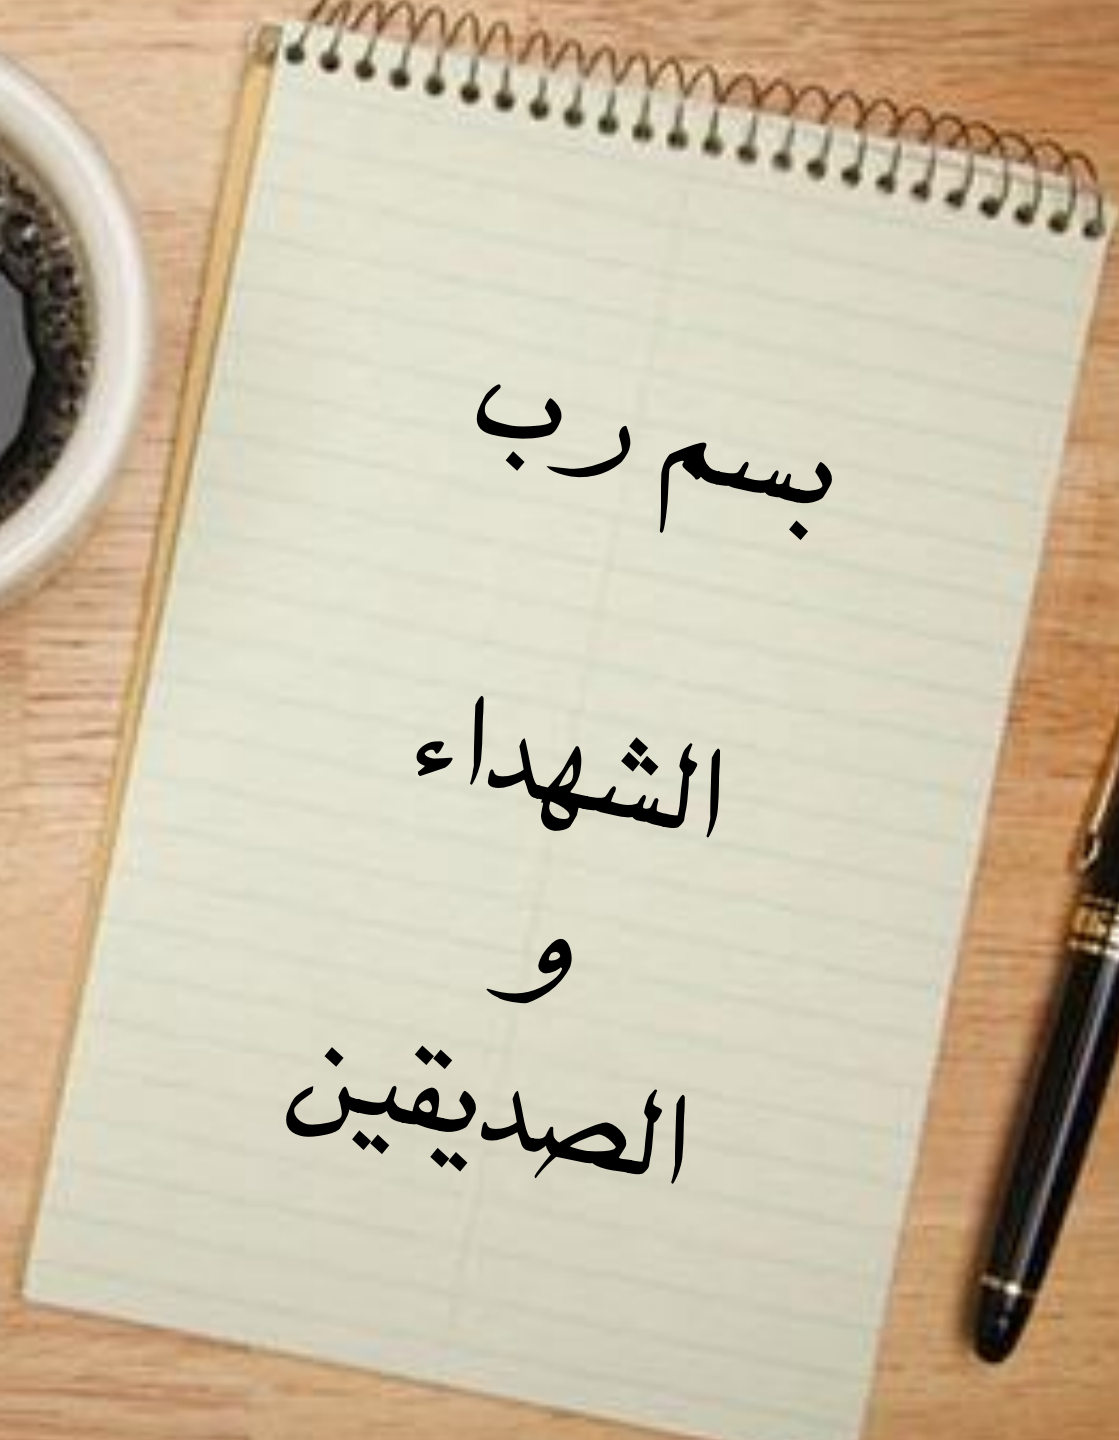 بسم رب
الشهداء
و
الصديقين